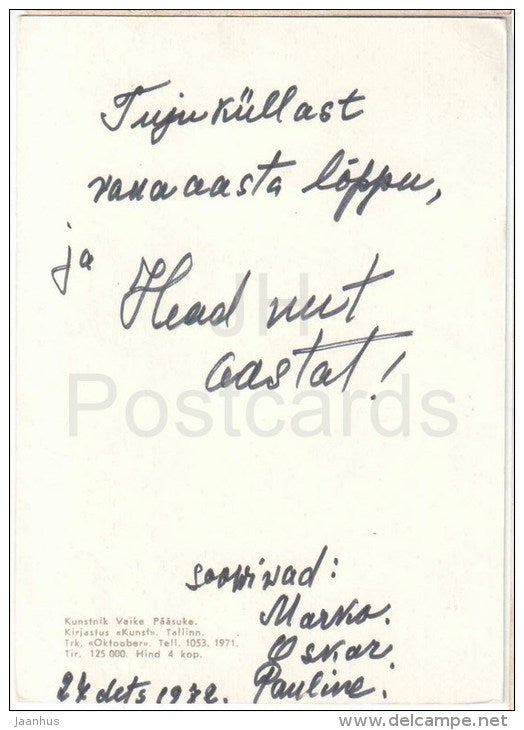 Tujuküllast
vana aasta lõppu,
ja
Head uut
aastat!
JH
Postcards
soovivad:
Marko.
Oskar
Pauline.
Kunstnik Veike Pääsuke.
Kirjastus «Kunst». Tallinn.
Trk. «Oktoober». Tell. 1053. 1971.
Tir. 125 000. Hind 4 kop.
dets 1972.
jaanhus
www.delcampe.net